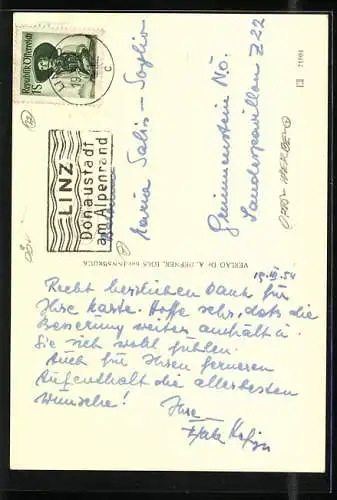 Republik Österreich
1S
LINZ
Donaustadt
am Alpenrand
Maria Salis-Soglio
Grimmenstein N.Ö.
Sonderpavillon Z 22
VERLAG Dr. A. DEFNER, IGLS bei INNSBRUCK
Recht herzlichen Dank für
Ihre Karte. Hoffe sehr, dass die
Besserung weiter anhält u.
Sie sich wohl fühlen.
Auch für Ihren ferneren
Aufenthalt die allerbesten
Wünsche!
Ihre